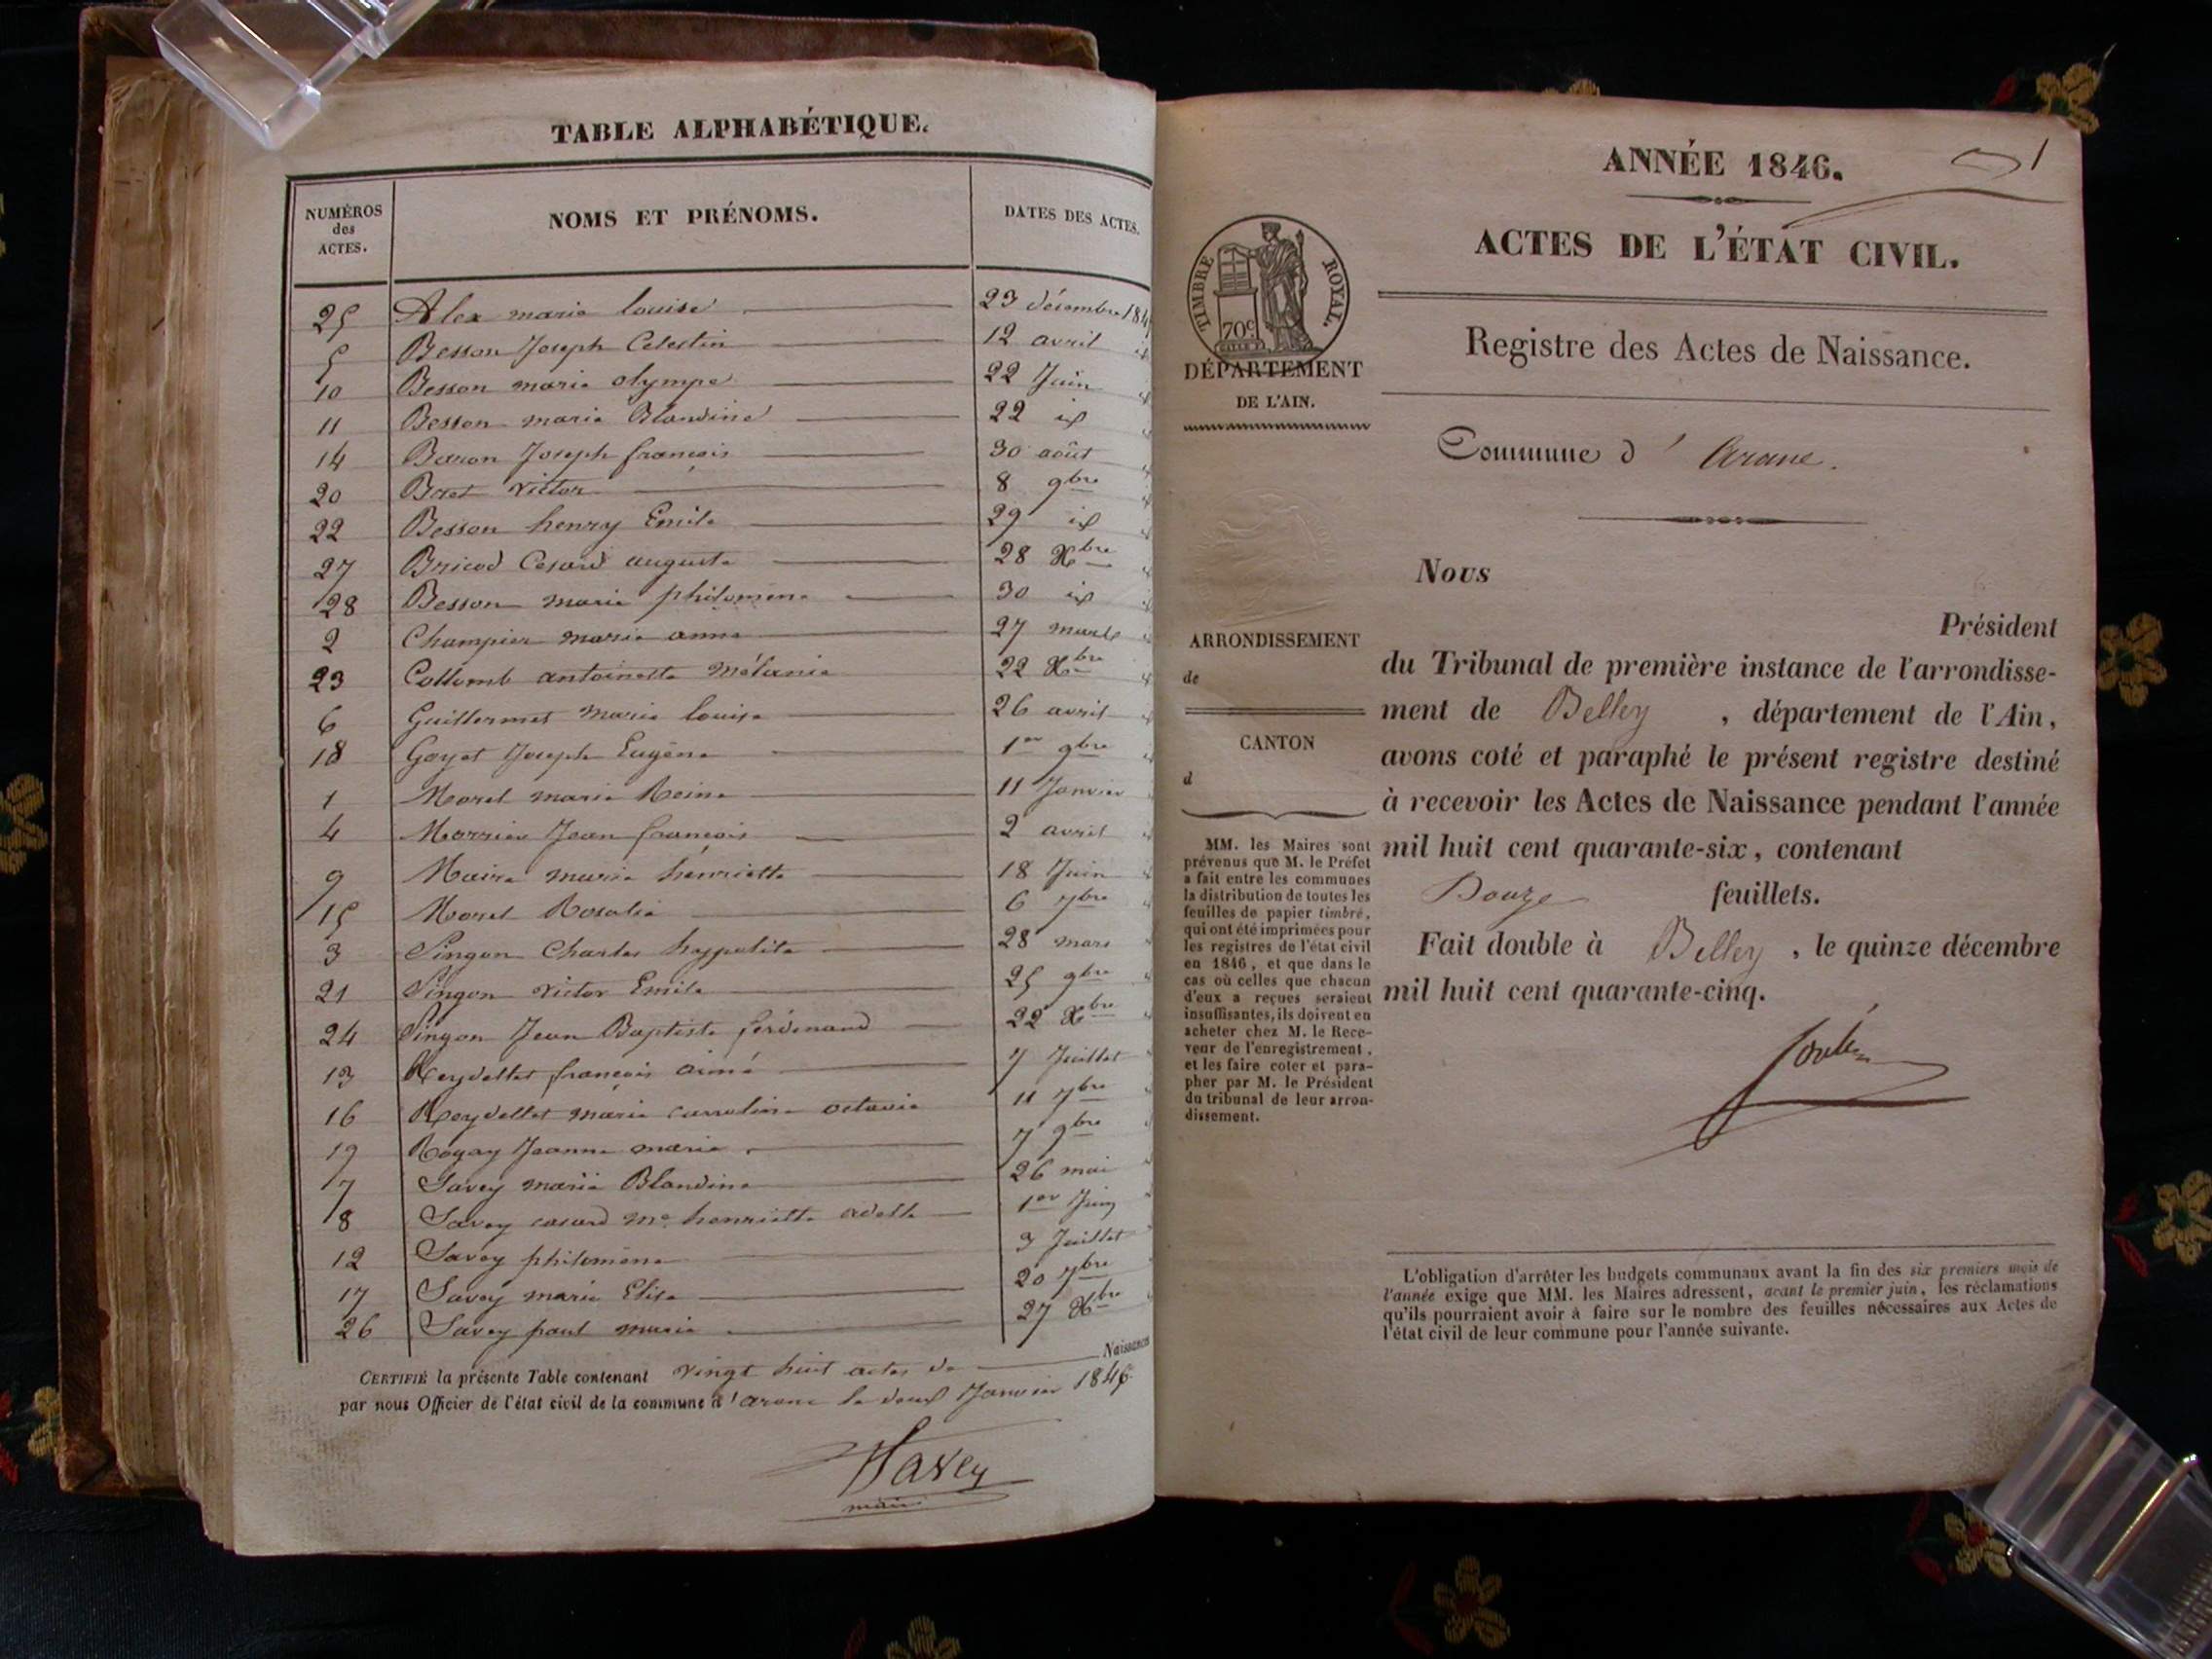 TABLE ALPHABÉTIQUE.
NUMÉROS des ACTES. NOMS ET PRÉNOMS. DATES DES ACTES.
25 Alex marie louise 23 décembre 184
5 Besson Joseph Celestin 12 avril
10 Besson marie olympe 22 Juin
11 Besson marie Blandine 22 id
14 Baron Joseph françois 30 août
20 Boret victor 8 9bre
22 Besson henry Emile 29 id
27 Bricod Cesard auguste 28 Xbre
28 Besson marie philomène 30 id
2 Champier marie anne 27 mars
23 Collomb antoinette Mélanie 22 Xbre
6 Guillermet Marie louise 26 avril
18 Goyet Joseph Eugène 1er 9bre
1 Morel marie Reine 11 Janvier
4 Morrier Jean françois 2 avril
9 Maire marie henriette 18 Juin
15 Morel Rosalie 6 7bre
3 Pingon Charles hyppolite 28 mars
21 Pingon victor Emile 25 9bre
24 Pingon Jean Baptiste ferdinand 22 Xbre
13 Reydellet françois aimé 7 Juillet
16 Reydellet marie carroline octavie 11 7bre
19 Rogay Jeanne marie 7 9bre
7 Savey marie Blandine 26 mai
8 Savey cesard me henriette adelle 1er Juin
12 Savey philomène 3 Juillet
17 Savey marie Elise 20 7bre
26 Savey paul marie 27 Xbre
CERTIFIÉ la présente Table contenant vingt huit actes de Naissance
par nous Officier de l'état civil de la commune d'arane le deux Janvier 1846
Savey
maire
ANNÉE 1846. 1
ACTES DE L'ÉTAT CIVIL.
Registre des Actes de Naissance.
TIMBRE ROYAL.
70c
DÉPARTEMENT
DE L'AIN.
Commune d'Arane.
Nous
Président
du Tribunal de première instance de l'arrondisse-
ment de Belley, département de l'Ain,
avons coté et paraphé le présent registre destiné
à recevoir les Actes de Naissance pendant l'année
mil huit cent quarante-six, contenant
Douze feuillets.
Fait double à Belley, le quinze décembre
mil huit cent quarante-cinq.
ARRONDISSEMENT
de
CANTON
d
MM. les Maires sont
prévenus que M. le Préfet
a fait entre les communes
la distribution de toutes les
feuilles de papier timbré,
qui ont été imprimées pour
les registres de l'état civil
en 1846, et que dans le
cas où celles que chacun
d'eux a reçues seraient
insuffisantes, ils doivent en
acheter chez M. le Rece-
veur de l'enregistrement,
et les faire coter et para-
pher par M. le Président
du tribunal de leur arron-
dissement.
L'obligation d'arrêter les budgets communaux avant la fin des six premiers mois de
l'année exige que MM. les Maires adressent, avant le premier juin, les réclamations
qu'ils pourraient avoir à faire sur le nombre des feuilles nécessaires aux Actes de
l'état civil de leur commune pour l'année suivante.